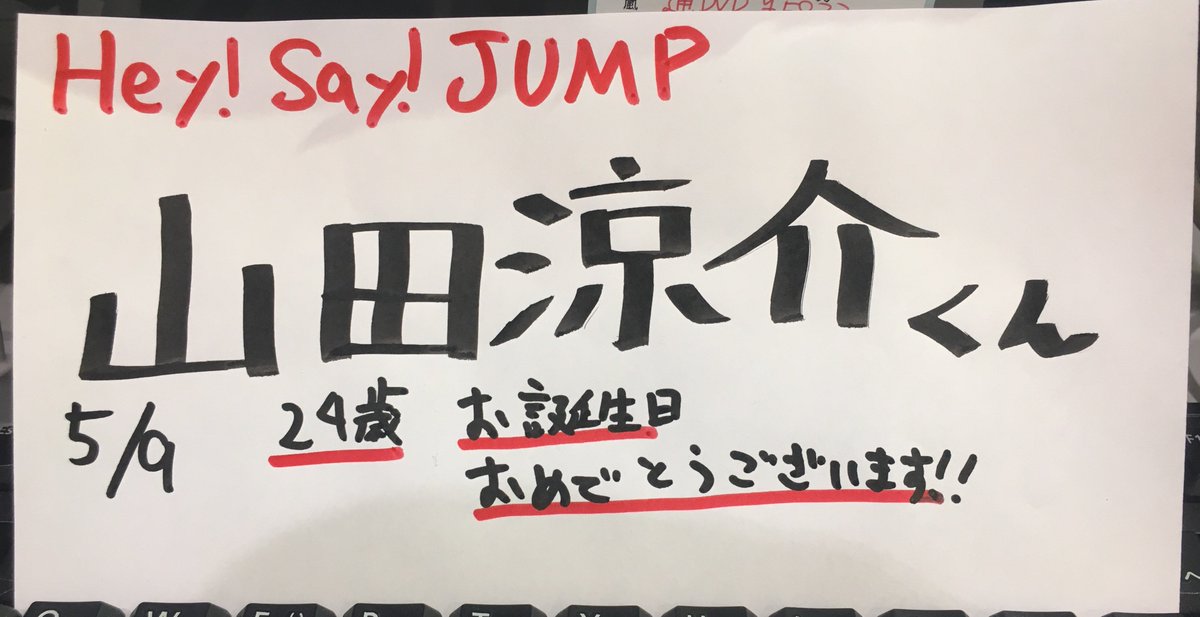 Hey! Say! JUMP
山田涼介くん
5/9 24歳 お誕生日
おめでとうございます!!